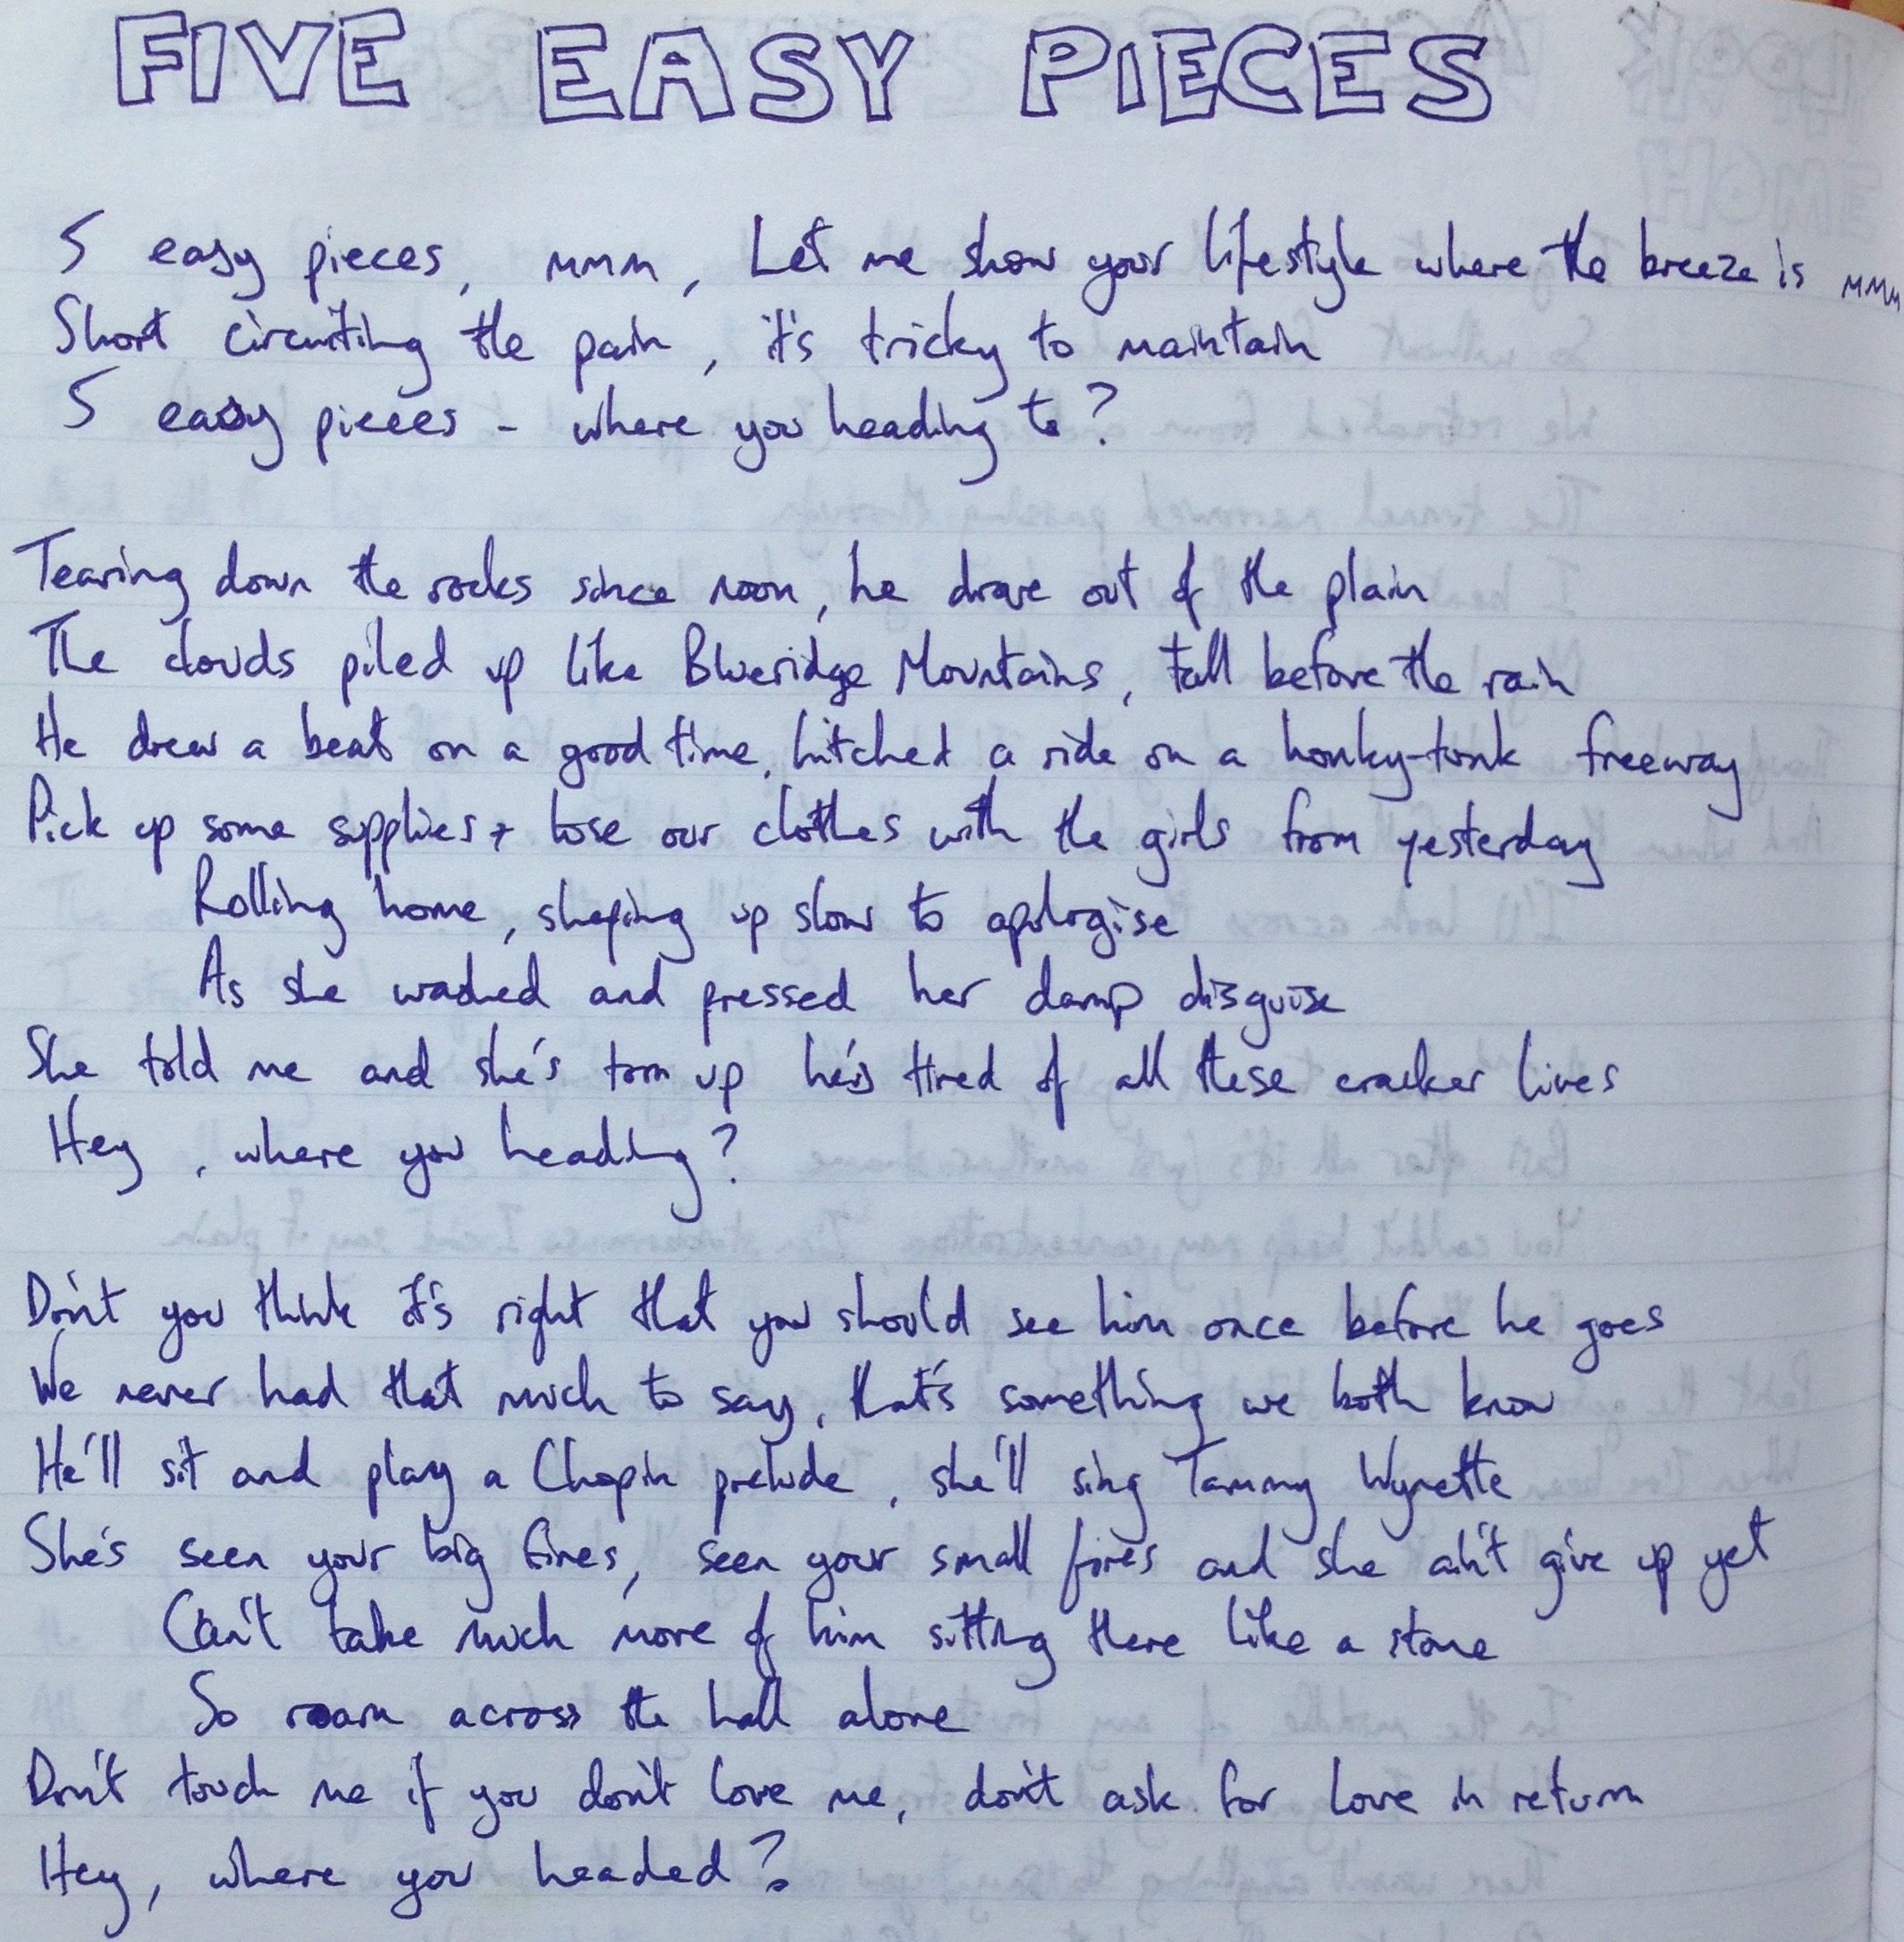 FIVE EASY PIECES
5 easy pieces, mmm, Let me show your lifestyle where the breeze is mmm
Short circuiting the pain, it's tricky to maintain
5 easy pieces - where you heading to?
Tearing down the rocks since noon, he drove out of the plain
The clouds piled up like Blueridge Mountains, tall before the rain
He drew a beat on a good time, hitched a ride on a honky-tonk freeway
Pick up some supplies + lose our clothes with the girls from yesterday
Rolling home, shaping up slow to apologise
As she washed and pressed her damp disguise
She told me and she's torn up he's tired of all these cracker lives
Hey, where you heading?
Don't you think it's right that you should see him once before he goes
We never had that much to say, that's something we both know
He'll sit and play a Chopin prelude, she'll sing Tammy Wynette
She's seen your big fires, seen your small fires and she ain't give up yet
Can't take much more of him sitting there like a stone
So roam across the hall alone
Don't touch me if you don't love me, don't ask for love in return
Hey, where you headed?